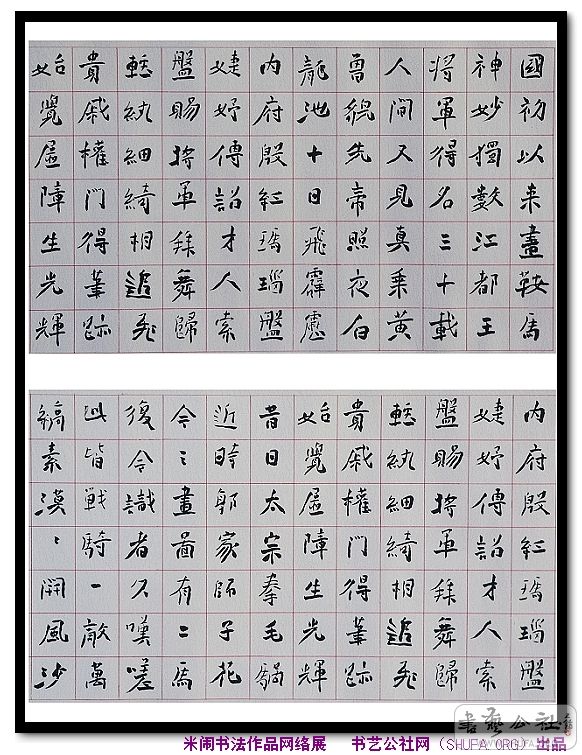 國初以来畫鞍馬
神妙獨數江都王
將軍得名三十載
人間又見真乘黄
曽貌先帝照夜白
龍池十日飛霹靂
内府殷紅瑪瑙盤
婕妤傳詔才人索
盤賜將軍拜舞歸
輕紈細綺相追飛
貴戚權門得筆跡
始覺屏障生光輝
内府殷紅瑪瑙盤
婕妤傳詔才人索
盤賜將軍拜舞歸
輕紈細綺相追飛
貴戚權門得筆跡
始覺屏障生光輝
昔日太宗拳毛騧
近時郭家師子花
今之畫啚有二馬
復令識者久嘆嗟
此皆戦騎一敵萬
縞素漠〻開風沙
書藝公社
米闹书法作品网络展 书艺公社网（SHUFA.ORG）出品